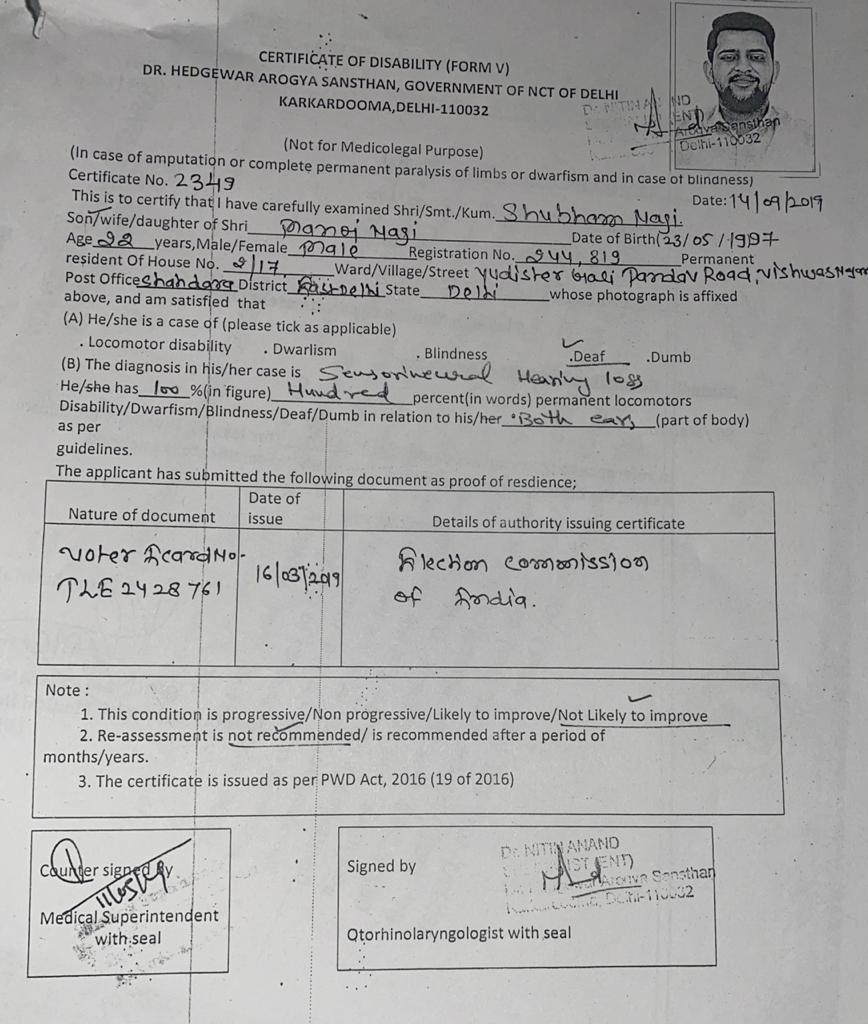 CERTIFICATE OF DISABILITY (FORM V)
DR. HEDGEWAR AROGYA SANSTHAN, GOVERNMENT OF NCT OF DELHI
KARKARDOOMA,DELHI-110032
Arogya Sansthan
Delhi-110032
(Not for Medicolegal Purpose)
(In case of amputation or complete permanent paralysis of limbs or dwarfism and in case of blindness)
Certificate No. 2349
Date: 14/09/2019
This is to certify that I have carefully examined Shri/Smt./Kum. Shubham Nagi.
Son/wife/daughter of Shri Manoj Nagi Date of Birth(23/05/1997
Age 22 years,Male/Female Male Registration No. 244,819 Permanent
resident Of House No. 2/17, Ward/Village/Street Yudister Gali Pandav Road, Vishwas Nagar
Post Office Shahdara District East Delhi State Delhi whose photograph is affixed
above, and am satisfied that
(A) He/she is a case of (please tick as applicable)
. Locomotor disability . Dwarlism . Blindness .Deaf .Dumb
(B) The diagnosis in his/her case is Sensorineural Hearing loss
He/she has 100 %(in figure) Hundred percent(in words) permanent locomotors
Disability/Dwarfism/Blindness/Deaf/Dumb in relation to his/her Both ears (part of body)
as per
guidelines.
The applicant has submitted the following document as proof of resdience;
Nature of document Date of issue Details of authority issuing certificate
Voter Icard No- TLE2428761 16/03/2019 Election Commission of India.
Note :
1. This condition is progressive/Non progressive/Likely to improve/Not Likely to improve
2. Re-assessment is not recommended/ is recommended after a period of
months/years.
3. The certificate is issued as per PWD Act, 2016 (19 of 2016)
Counter signed By
Medical Superintendent
with seal
Signed by
Dr. NITIN ANAND
(ENT)
Arogya Sansthan
Delhi-110032
Qtorhinolaryngologist with seal